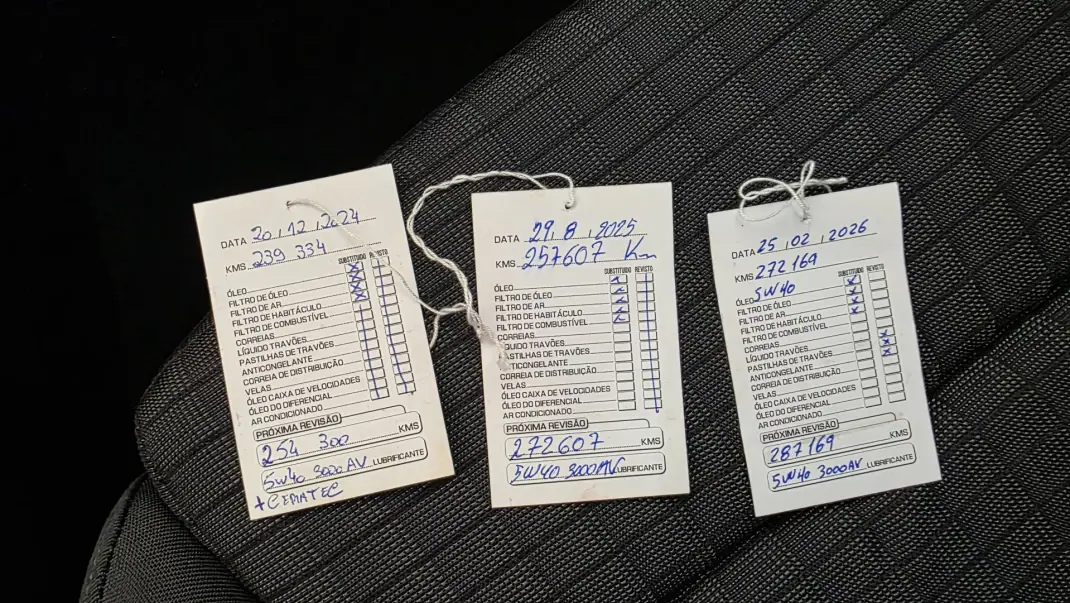 DATA 20, 12, 2024
KMS 239 334
SUBSTITUIDO REVISTO
ÓLEO
FILTRO DE ÓLEO
FILTRO DE AR
FILTRO DE HABITÁCULO
FILTRO DE COMBUSTÍVEL
CORREIAS
LÍQUIDO TRAVÕES
PASTILHAS DE TRAVÕES
ANTICONGELANTE
CORREIA DE DISTRIBUIÇÃO
VELAS
ÓLEO CAIXA DE VELOCIDADES
ÓLEO DO DIFERENCIAL
AR CONDICIONADO
PRÓXIMA REVISÃO
254 300 KMS
5W40 3000AV LUBRIFICANTE
+CERATEC
DATA 29, 8, 2025
KMS 257607 Km
SUBSTITUIDO REVISTO
ÓLEO
FILTRO DE ÓLEO
FILTRO DE AR
FILTRO DE HABITÁCULO
FILTRO DE COMBUSTÍVEL
CORREIAS
LÍQUIDO TRAVÕES
PASTILHAS DE TRAVÕES
ANTICONGELANTE
CORREIA DE DISTRIBUIÇÃO
VELAS
ÓLEO CAIXA DE VELOCIDADES
ÓLEO DO DIFERENCIAL
AR CONDICIONADO
PRÓXIMA REVISÃO
272607 KMS
5W40 3000AV LUBRIFICANTE
DATA 25, 02, 2026
KMS 272169
SUBSTITUIDO REVISTO
ÓLEO 5W40
FILTRO DE ÓLEO
FILTRO DE AR
FILTRO DE HABITÁCULO
FILTRO DE COMBUSTÍVEL
CORREIAS
LÍQUIDO TRAVÕES
PASTILHAS DE TRAVÕES
ANTICONGELANTE
CORREIA DE DISTRIBUIÇÃO
VELAS
ÓLEO CAIXA DE VELOCIDADES
ÓLEO DO DIFERENCIAL
AR CONDICIONADO
PRÓXIMA REVISÃO
287169 KMS
5W40 3000AV LUBRIFICANTE